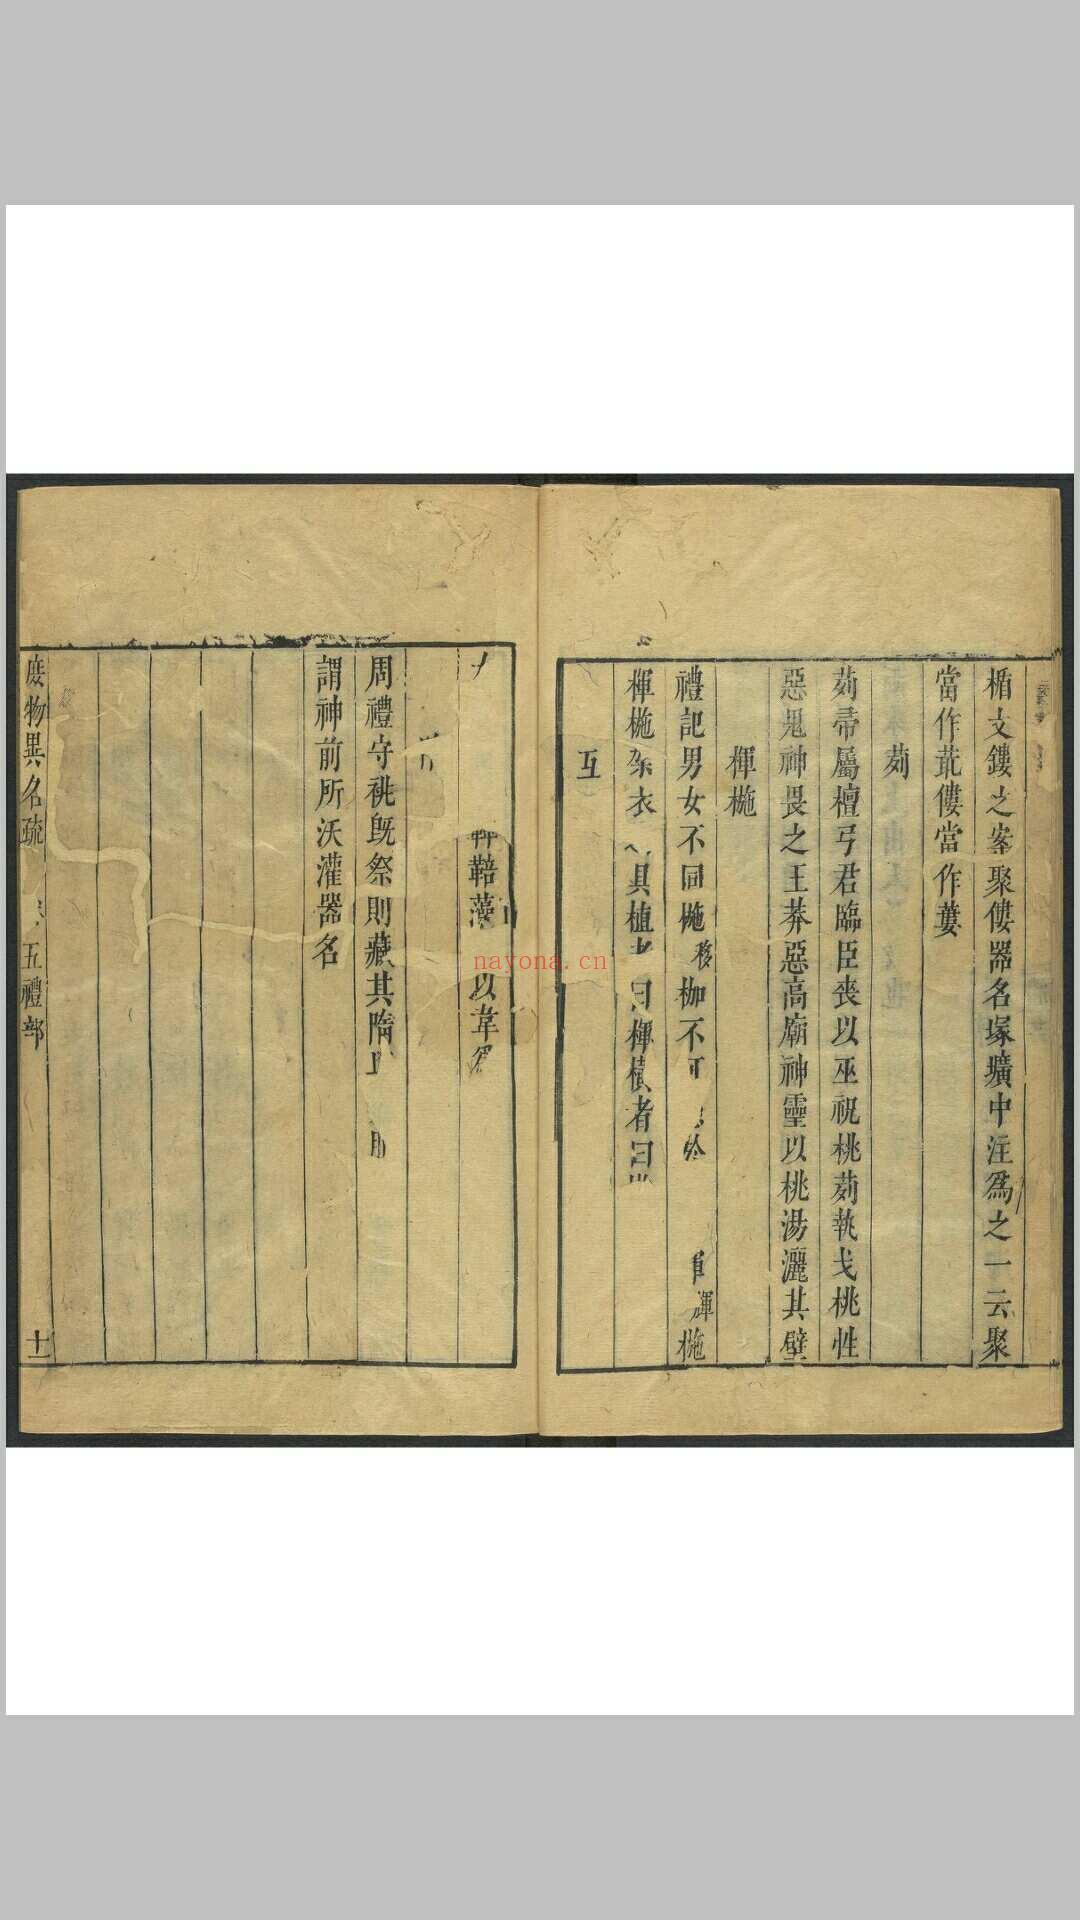 楯文鏤之輁聚僂器名塚壙中注爲之一云聚
當作菆僂當作蔞
茢
茢帚屬檀弓君臨臣喪以巫祝桃茢執戈桃性
惡鬼神畏之王莽惡高廟神靈以桃湯灑其壁
楎椸
禮記男女不同椸 移 枷不 楎椸
楎椸 衣 具植 曰楎橫者曰
互
鞛 以韋
周禮守祧既祭則藏其隋
謂神前所沃灌器名
庶物異名疏 五禮部 十一
nayona.cn